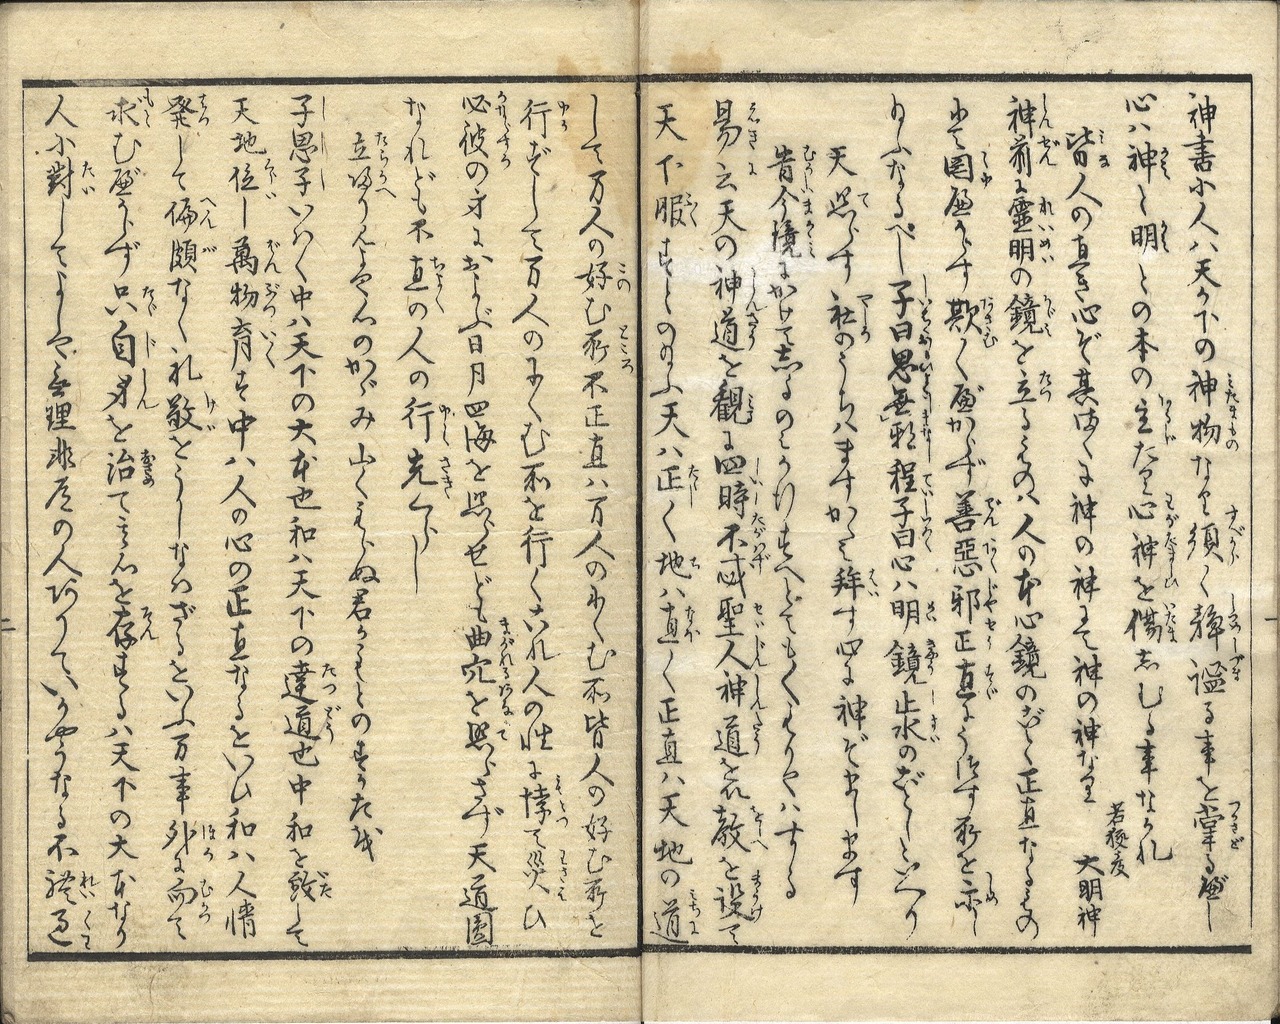 神書に人ハ天が下の神物なり須く静謐る事を掌る べし
心ハ神と明との本の主たり心神を傷しむる事なかれ
皆人の直き心ぞ其まゝに神の神にて神の神なり 若狭彦大明神
神前に霊明の鏡を立るものハ人の本心鏡のごとく正直なるもの
にて罔べからず欺くべからず善惡邪正直にうつす所を示し
給ふなるべし子曰思無邪程子曰心ハ明鏡止水のごとしといへり
天照らす社のうちハますかゞミ拜す心に神ぞまします
昔今鏡にかけてしるのミかけすへとてもくもりやハする
易云天の神道を観に四時不忒聖人神道を以教を設て
天下服すとのたまふ天ハ正しく地ハ直く正直ハ天地の道に
して万人の好む所不正直ハ万人のにくむ所皆人の好む所を
行ずして万人のにくむ所を行くこれ人の性に悖て災ひ
必彼の身におよぶ日月四海を照らせども曲穴を照らさず天道圓
なれども不直の人の行先くらし
立帰り見よや心のかゞみ山くもらぬ君がもとのすがたを
子思子いハく中ハ天下の大本也和ハ天下の達道也中和を致して
天地位し萬物育す中ハ人の心の正直なるをいひ和ハ人情
発して偏頗なく礼敬をうしなハざるをいふ万事外に向て
求むべからず只自身を治て本心を存するハ天下の大本なり
人に對してよしや無理非道の人ありていかやうなる不礼過